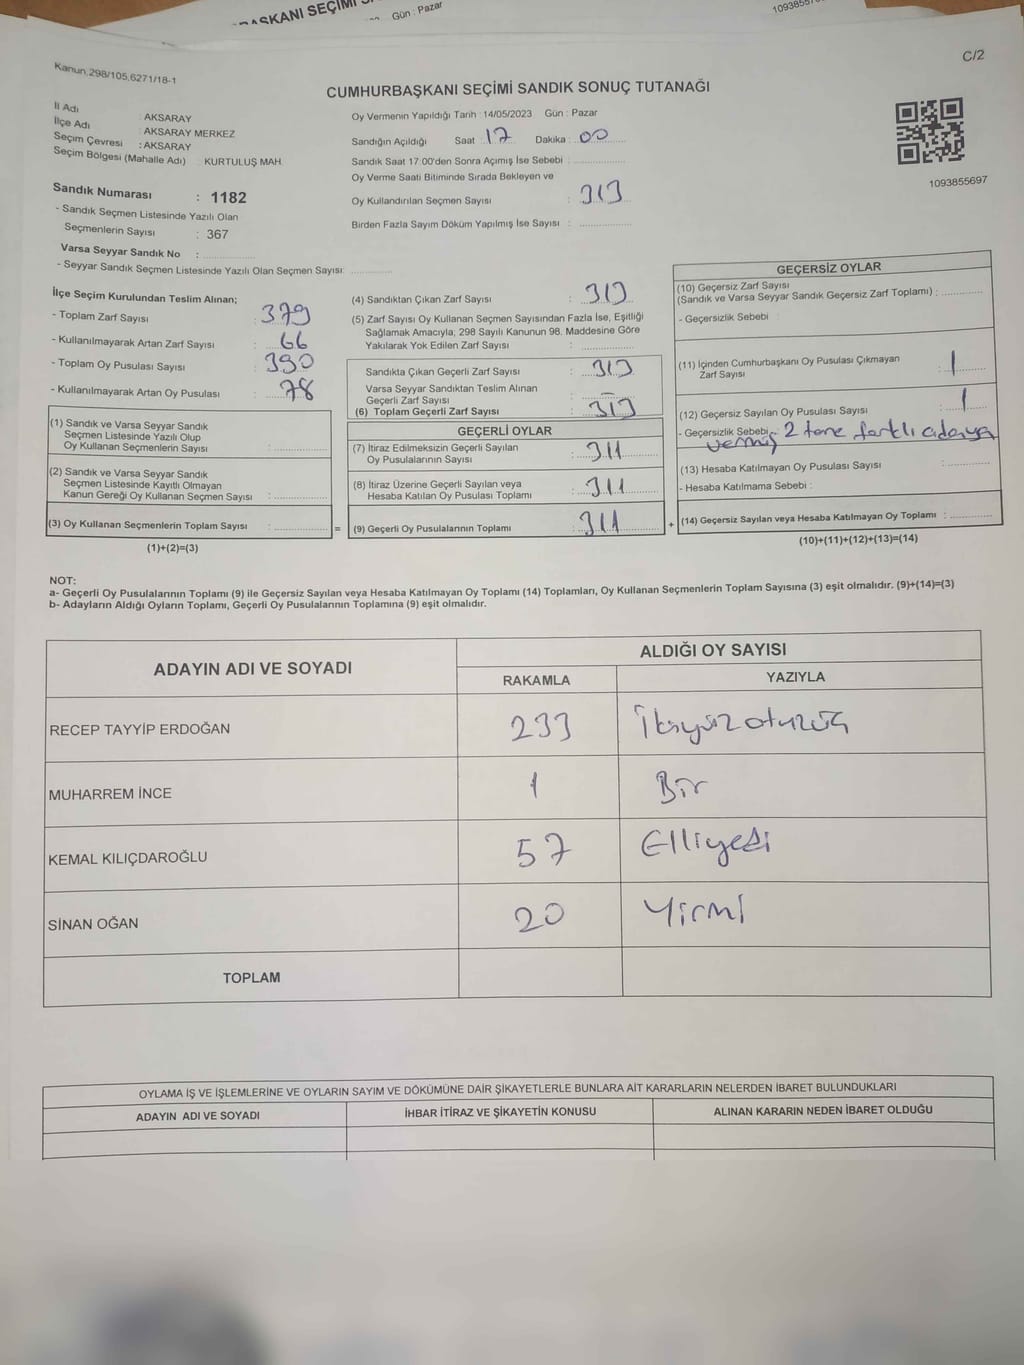 BAŞKANI SEÇİMİ
Gün : Pazar
Kanun,298/105,6271/18-1
C/2
CUMHURBAŞKANI SEÇİMİ SANDIK SONUÇ TUTANAĞI
İl Adı : AKSARAY
İlçe Adı : AKSARAY MERKEZ
Seçim Çevresi : AKSARAY
Seçim Bölgesi (Mahalle Adı) : KURTULUŞ MAH.
Oy Vermenin Yapıldığı Tarih : 14/05/2023 Gün : Pazar
Sandığın Açıldığı Saat : 17 Dakika : 00
Sandık Saat 17:00'den Sonra Açımış İse Sebebi :
Oy Verme Saati Bitiminde Sırada Bekleyen ve
Oy Kullandırılan Seçmen Sayısı : 313
Birden Fazla Sayım Döküm Yapılmış İse Sayısı :
1093855697
Sandık Numarası : 1182
- Sandık Seçmen Listesinde Yazılı Olan
Seçmenlerin Sayısı : 367
Varsa Seyyar Sandık No :
- Seyyar Sandık Seçmen Listesinde Yazılı Olan Seçmen Sayısı:
İlçe Seçim Kurulundan Teslim Alınan;
- Toplam Zarf Sayısı : 379
- Kullanılmayarak Artan Zarf Sayısı : 66
- Toplam Oy Pusulası Sayısı : 390
- Kullanılmayarak Artan Oy Pusulası : 78
(1) Sandık ve Varsa Seyyar Sandık
Seçmen Listesinde Yazılı Olup
Oy Kullanan Seçmenlerin Sayısı :
(2) Sandık ve Varsa Seyyar Sandık
Seçmen Listesinde Kayıtlı Olmayan
Kanun Gereği Oy Kullanan Seçmen Sayısı :
(3) Oy Kullanan Seçmenlerin Toplam Sayısı : =
(1)+(2)=(3)
(4) Sandıktan Çıkan Zarf Sayısı : 313
(5) Zarf Sayısı Oy Kullanan Seçmen Sayısından Fazla İse, Eşitliği
Sağlamak Amacıyla, 298 Sayılı Kanunun 98. Maddesine Göre
Yakılarak Yok Edilen Zarf Sayısı :
Sandıkta Çıkan Geçerli Zarf Sayısı : 313
Varsa Seyyar Sandıktan Teslim Alınan
Geçerli Zarf Sayısı :
(6) Toplam Geçerli Zarf Sayısı : 313
GEÇERLİ OYLAR
(7) İtiraz Edilmeksizin Geçerli Sayılan
Oy Pusulalarının Sayısı : 311
(8) İtiraz Üzerine Geçerli Sayılan veya
Hesaba Katılan Oy Pusulası Toplamı : 311
(9) Geçerli Oy Pusulalarının Toplamı : 311 +
GEÇERSİZ OYLAR
(10) Geçersiz Zarf Sayısı
(Sandık ve Varsa Seyyar Sandık Geçersiz Zarf Toplamı) :
- Geçersizlik Sebebi :
(11) İçinden Cumhurbaşkanı Oy Pusulası Çıkmayan
Zarf Sayısı : 1
(12) Geçersiz Sayılan Oy Pusulası Sayısı : 1
- Geçersizlik Sebebi : 2 tane farklı adaya
vermiş
(13) Hesaba Katılmayan Oy Pusulası Sayısı :
- Hesaba Katılmama Sebebi :
(14) Geçersiz Sayılan veya Hesaba Katılmayan Oy Toplamı :
(10)+(11)+(12)+(13)=(14)
NOT:
a- Geçerli Oy Pusulalarının Toplamı (9) ile Geçersiz Sayılan veya Hesaba Katılmayan Oy Toplamı (14) Toplamları, Oy Kullanan Seçmenlerin Toplam Sayısına (3) eşit olmalıdır. (9)+(14)=(3)
b- Adayların Aldığı Oyların Toplamı, Geçerli Oy Pusulalarının Toplamına (9) eşit olmalıdır.
ADAYIN ADI VE SOYADI
ALDIĞI OY SAYISI
RAKAMLA YAZIYLA
RECEP TAYYİP ERDOĞAN 233 İkiyüzotuzüç
MUHARREM İNCE 1 Bir
KEMAL KILIÇDAROĞLU 57 Elliyedi
SİNAN OĞAN 20 Yirmi
TOPLAM
OYLAMA İŞ VE İŞLEMLERİNE VE OYLARIN SAYIM VE DÖKÜMÜNE DAİR ŞİKAYETLERLE BUNLARA AİT KARARLARIN NELERDEN İBARET BULUNDUKLARI
ADAYIN ADI VE SOYADI İHBAR İTİRAZ VE ŞİKAYETİN KONUSU ALINAN KARARIN NEDEN İBARET OLDUĞU